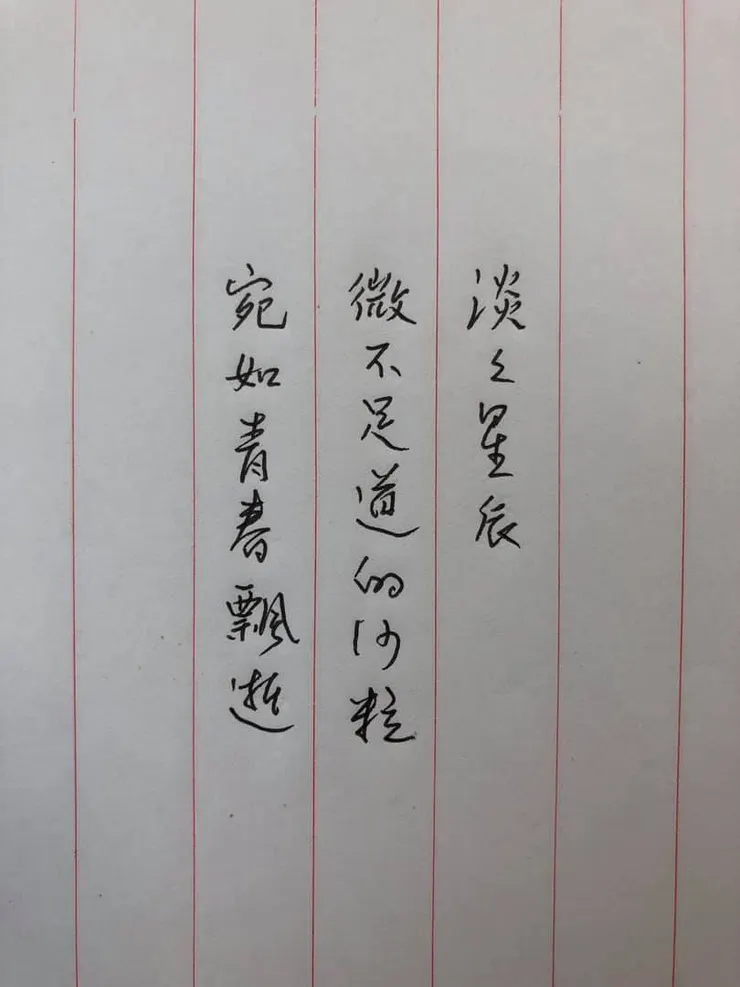 淡々星辰
微不足道的沙粒
宛如青春飄逝